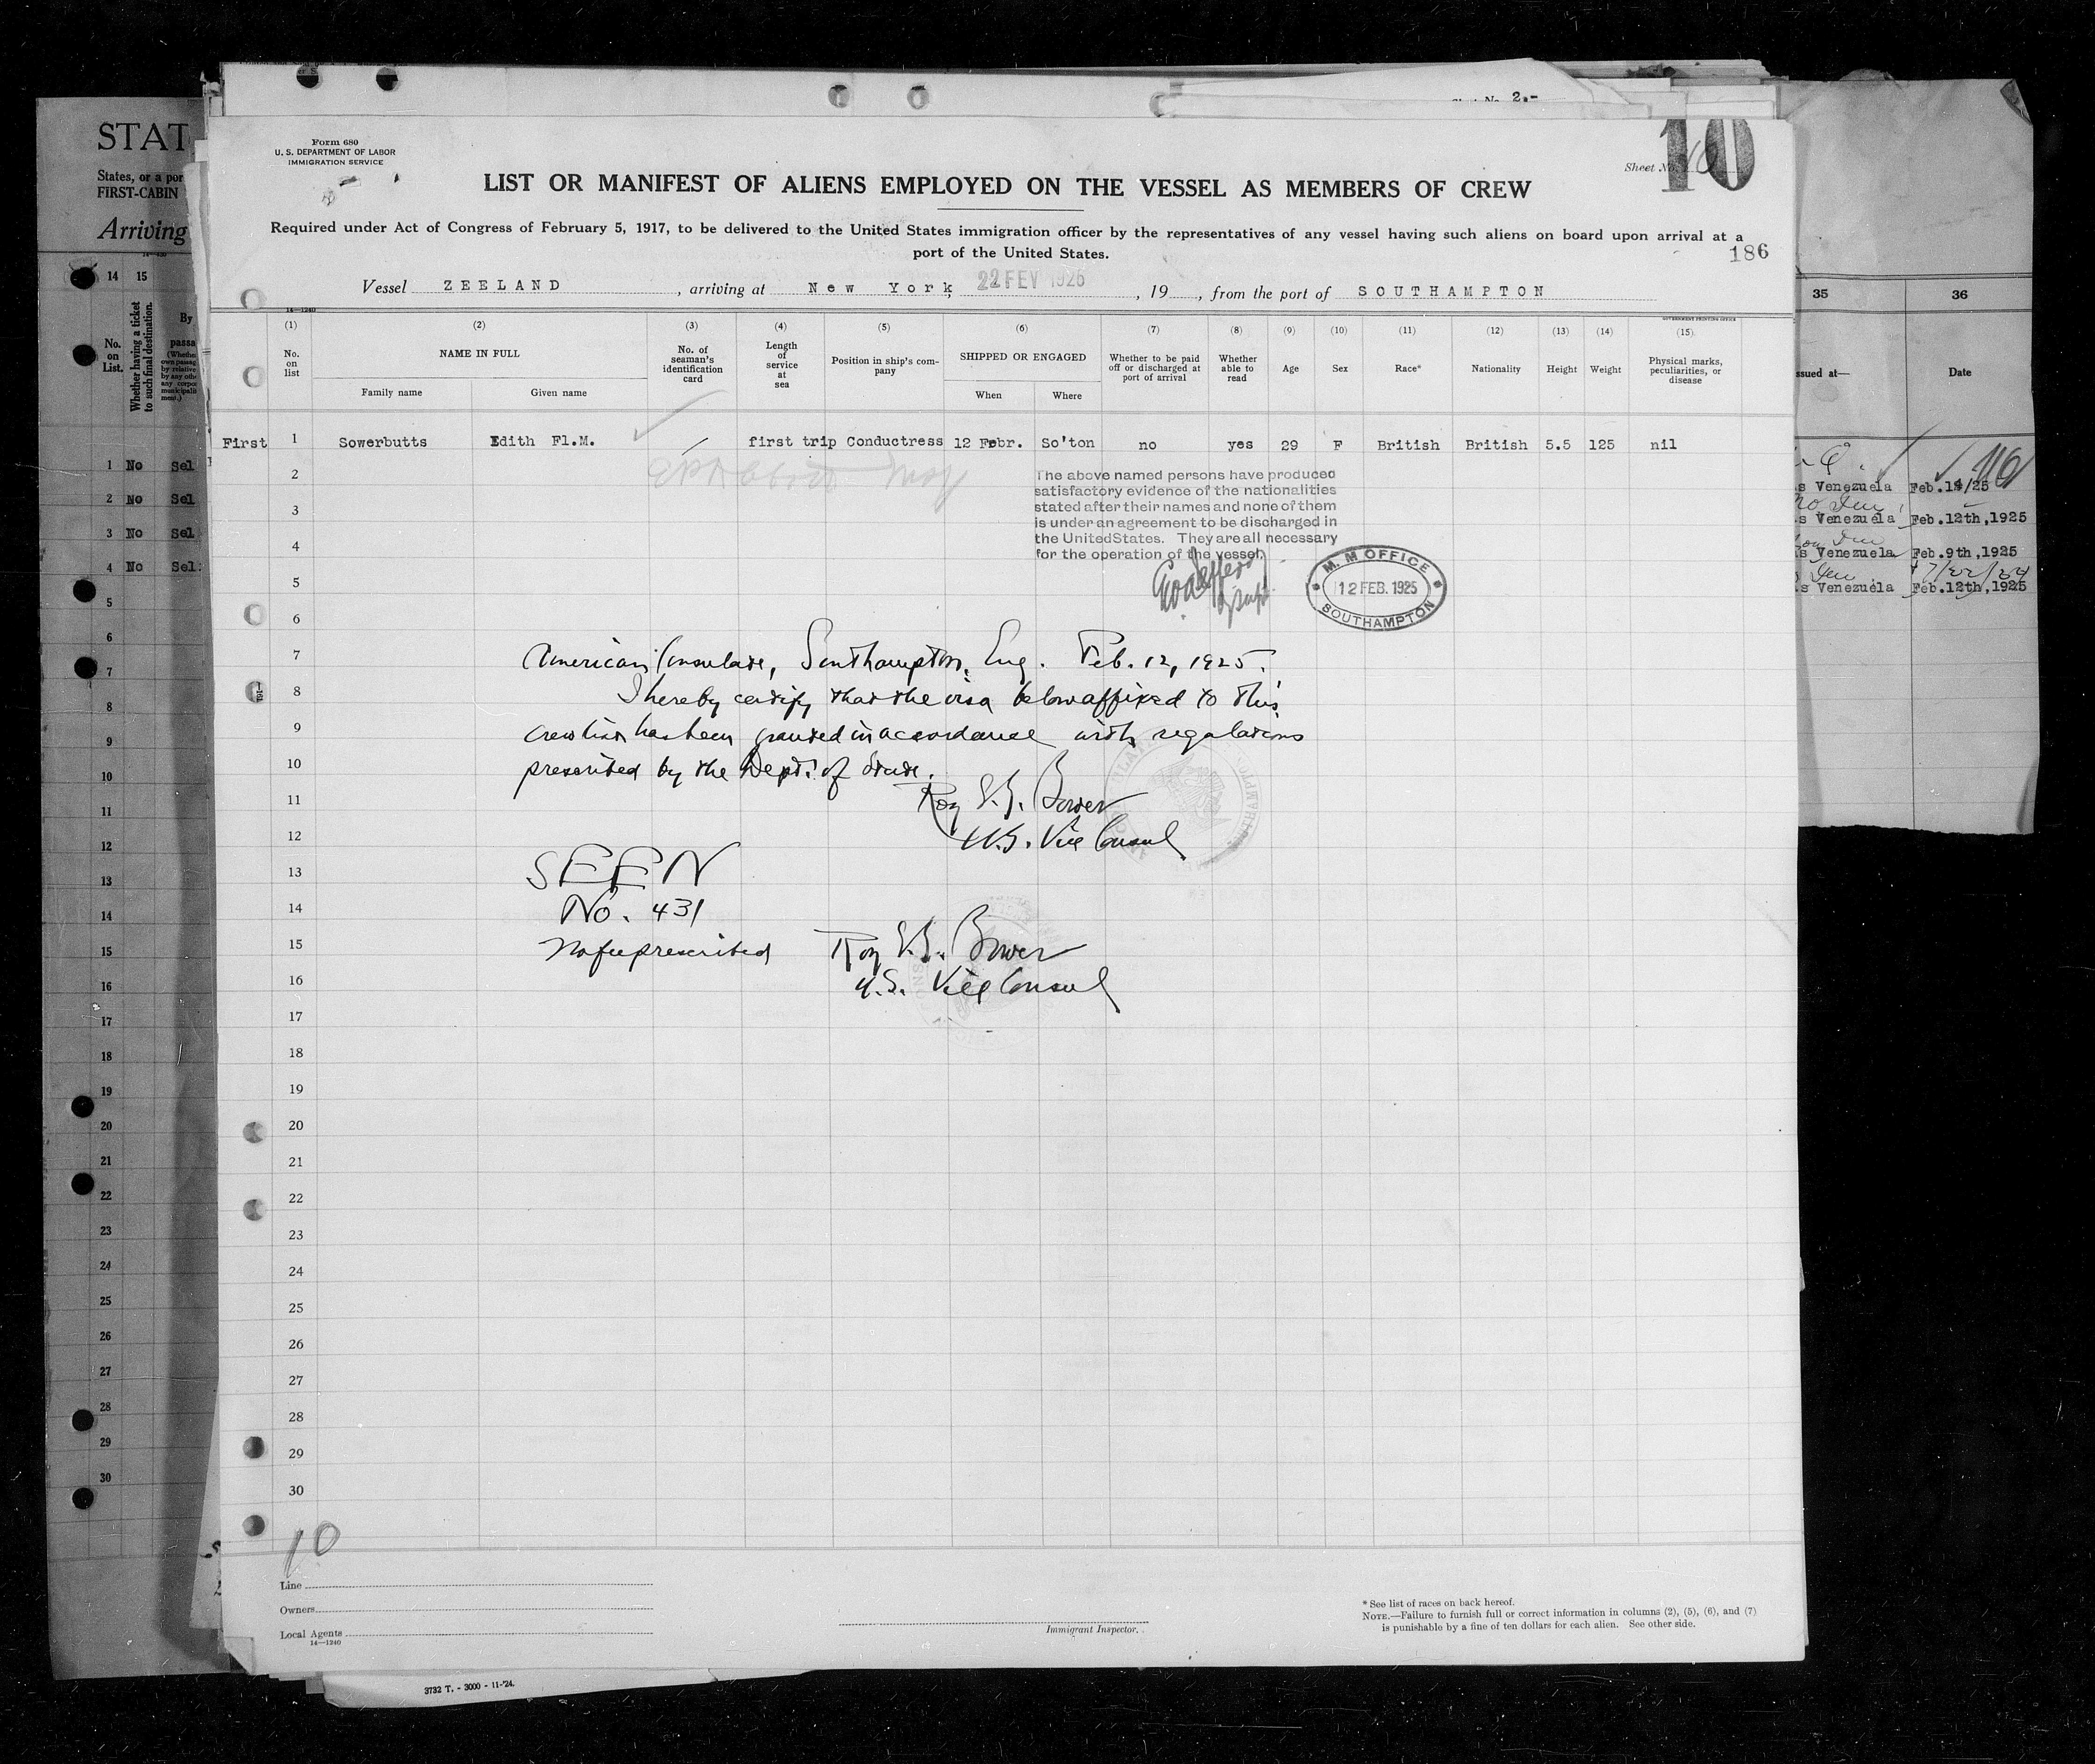 Form 680
U. S. DEPARTMENT OF LABOR
IMMIGRATION SERVICE
Sheet No. 2.-
Sheet No. 10
10
LIST OR MANIFEST OF ALIENS EMPLOYED ON THE VESSEL AS MEMBERS OF CREW
Required under Act of Congress of February 5, 1917, to be delivered to the United States immigration officer by the representatives of any vessel having such aliens on board upon arrival at a
port of the United States.
186
Vessel ZEELAND, arriving at New York, 22 FEV 1925, 19, from the port of SOUTHAMPTON
14—1240
GOVERNMENT PRINTING OFFICE
(1) (2) (3) (4) (5) (6) (7) (8) (9) (10) (11) (12) (13) (14) (15)
No. on list
NAME IN FULL
Family name Given name
No. of seaman's identification card
Length of service at sea
Position in ship's company
SHIPPED OR ENGAGED
When Where
Whether to be paid off or discharged at port of arrival
Whether able to read
Age
Sex
Race*
Nationality
Height
Weight
Physical marks, peculiarities, or disease
First 1 Sowerbutts Edith Fl.M. first trip Conductress 12 Febr. So'ton no yes 29 F British British 5.5 125 nil
2
3
4
5
6
7
8
9
10
11
12
13
14
15
16
17
18
19
20
21
22
23
24
25
26
27
28
29
30
The above named persons have produced
satisfactory evidence of the nationalities
stated after their names and none of them
is under an agreement to be discharged in
the United States. They are all necessary
for the operation of the vessel.
M. M OFFICE
12 FEB. 1925
SOUTHAMPTON
American Consulate, Southampton, Eng. Feb. 12, 1925.
I hereby certify that the visa below affixed to this
crew list has been granted in accordance with regulations
prescribed by the Dept. of State.
Roy E.B. Bower
U.S. Vice Consul
SEEN
No. 431
No fee prescribed Roy E.B. Bower
U.S. Vice Consul
10
Line
Owners
Local Agents
14—1240
Immigrant Inspector.
* See list of races on back hereof.
NOTE.—Failure to furnish full or correct information in columns (2), (5), (6), and (7)
is punishable by a fine of ten dollars for each alien. See other side.
3732 T. - 3000 - 11-'24.
STAT
States, or a por
FIRST-CABIN
Arriving
14 15
No. on List.
Whether having a ticket to such final destination.
By
passa
1 No Sel
2 No Sel
3 No Sel
4 No Sel
5
6
7
8
9
10
11
12
13
14
15
16
17
18
19
20
21
22
23
24
25
26
27
28
29
30
35 36
ssued at— Date
s Venezuela Feb.14/25
s Venezuela Feb.12th,1925
s Venezuela Feb.9th,1925
s Venezuela Feb.12th,1925